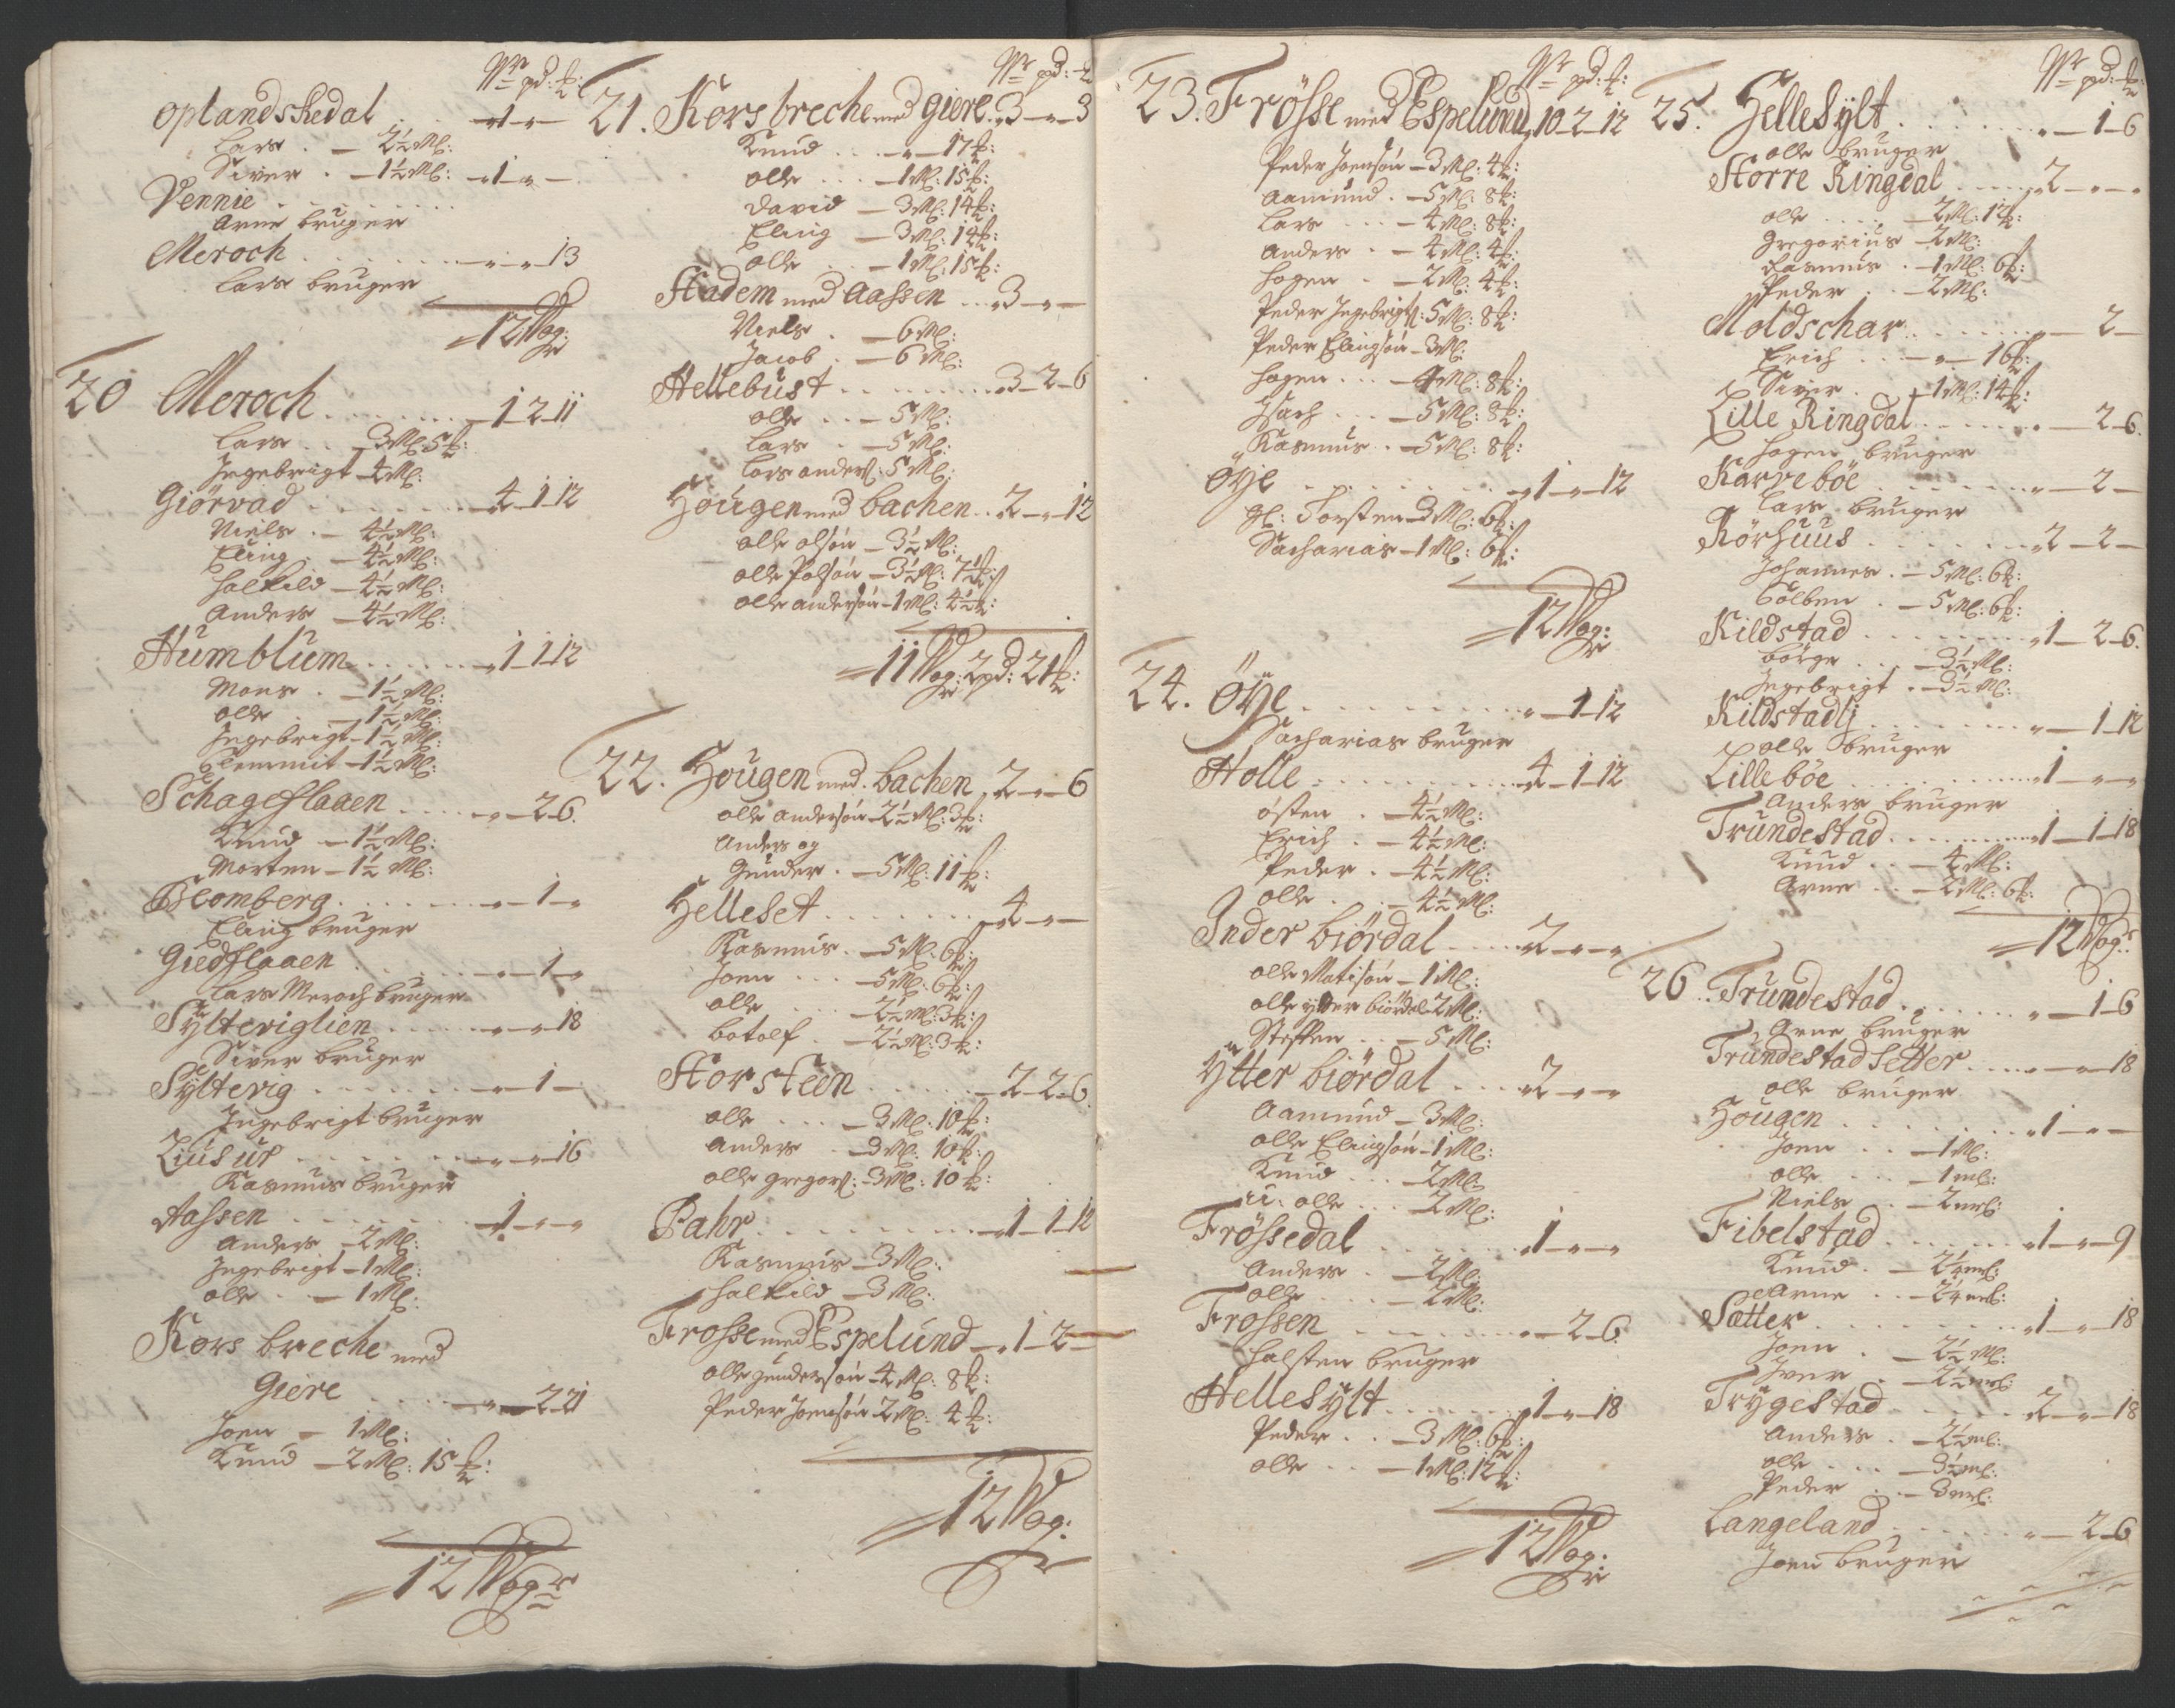 Wr pd: ℔:
Oplandskedal . . „1„—
Lars . — 2½ Ml:
Siver . — 1½ Ml: „1„—
Vennie . . . . . . .
Arne bruger
Meroch . . . . . . . —„—„13
Lars bruger
12 Wog:r
20 Meroch . . . . . . . —1-2-11
Lars . . — 3Ml: 5℔:
Ingebrigt — 4Ml:
Giörvad . . . . . . . 4-1-12
Niels . — 4½ Ml:
Eling . — 4½ Ml:
Halkild — 4½ Ml:
Anders — 4½ Ml:
Humblum . . . . . . „1-1-12
Mons . — 1½ Ml:
Olle . . — 1½ Ml:
Ingebrigt — 1½ Ml:
Clemmit — 1½ Ml:
Schageflaaen . . . . —„—2-6.
Knud — 1½ Ml:
Morten — 1½ Ml:
Blomberg . . . . . . —„—1—„
Eling bruger
Giedflaaen . . . . . —„—1—„
Lars Meroch bruger
Sylteviglien . . . . . —„—„18
Siver bruger
Syltevig . . . . . . —„—1—
Ingebrigt bruger
Liusur . . . . . . . —„—„16
Rasmus bruger
Aassen . . . . . . . —1—„—„
Anders — 2Ml:
Ingebrigt — 1Ml:
Olle . . — 1Ml:
Korsbreche med
Giere . . . . —„—2-21
Joen — 1Ml:
Knud — 2Ml: 15℔:
12 Wog:r
Wr pd: ℔
21. Korsbreche med Giere . 3—„—3
Knud . . . —„—17℔:
Olle . . . — 1Ml: 15℔:
David — 3Ml: 14℔:
Eling — 3Ml: 14℔:
Olle . . — 1Ml: 15℔:
Stadem med Aassen . . . 3—„—
Niels . — 6Ml:
Jacob . — 6Ml:
Hellebust . . . . . . . . „3-2-6
Olle . . . — 5Ml:
Lars . — 5Ml:
Lars anders: 5Ml:
Hougen med bachen . . 2—„12
Olle Olsön — 3½ Ml:
Olle Polsön — 3½ Ml: 7½℔:
Olle andersön — 1Ml: 4½℔:
11 Wog: 2pd: 21℔:
22. Hougen med bachen . 2—„—6
Olle andersön — 2½ Ml: 3℔:
Anders og
Gunder . — 5Ml: 11℔:
Helleset . . . . . . . . 4—„—
Rasmus . — 5Ml: 6℔:
Joen . . . — 5Ml: 6℔:
Olle . . . — 2½Ml: 3℔:
botolf . — 2½Ml: 3℔:
Storsteen . . . . . . —2-2-6
Olle . . . — 3Ml: 10℔:
Anders . — 3Ml: 10℔:
Olle gregors: — 3Ml: 10℔:
Bahr . . . . . . . . . —1-1-12
Rasmus — 3Ml:
Halkild — 3Ml:
Frosse med Espelund —„1-2—
Olle gundersön — 4Ml: 8℔:
Peder Joensön — 2Ml: 4℔:
12 Wog:r
Wr pd: ℔:
23. Frösse med Espelund, 10-2-12
Peder Joensön — 3Ml: 4℔:
Aamund . — 5Ml: 8℔:
Lars . . . — 4Ml: 8℔:
Anders . — 4Ml: 4℔:
Hogen . — 2Ml: 4℔:
Peder Ingebrigts: 5Ml: 8℔:
Peder Elingsön — 3Ml:
Hogen . . . — 4Ml: 8℔:
Isach . . . — 5Ml: 8℔:
Rasmus . — 5Ml: 8℔:
Öye . . . . . . . . . „1—„—12
gl: Torsten — 3Ml: 6℔:
Sacharias — 1Ml: 6℔:
12 Wog:r
24. Öye . . . . . . . . . „—1-12
Sacharias bruger
Stolle . . . . . . . . . 4-1-12
Östen . — 4½ Ml:
Erich . — 4½ Ml:
Peder . — 4½ Ml:
Olle . . — 4½ Ml:
Inder biördal . . . . „2—„—„
Olle Matisön — 1Ml:
Olle ytter biördal 2Ml:
Steffen . . — 5Ml:
Ytter biördal . . . „2—„—„
Aamund — 3Ml:
Olle Elingsön — 1Ml:
Knud . . . — 2Ml:
u: Olle . . . — 2Ml:
Frössedal . . . . . . „1—„—„
Anders . — 2Ml:
Olle . . . — 2Ml:
Frossen . . . . . . . „—2-6.
Halsten bruger
Hellesylt . . . . . . „1—„—18
Peder . . — 3Ml: 6℔:
Olle . . . — 1Ml: 12℔:
12 Wog:r
Wr pd: ℔
25. Hellesylt . . . . . . . „—1-6
Olle bruger
Storre Ringdal . . . . „2—„—„
Olle . . . . — 2Ml: 12℔:
Gregorius — 2Ml:
Rasmus . — 1Ml: 6℔:
Peder . . — 2Ml:
Moldschar . . . . . . . „—2—
Erich . . . —„—16℔:
Siver . . — 1Ml: 14℔:
Lille Ringdal . . . . . „—2-6.
Hogen bruger
Karreböe . . . . . . . . „—2—
Lars bruger
Rörhuus . . . . . . . . „2-2—
Johannes . — 5Ml: 6℔:
Colben . — 5Ml: 6℔:
Kildstad . . . . . . . . „1-2-6.
Börge . . — 3½ Ml:
Ingebrigt . — 3½ Ml:
Kildstadli . . . . . . . „—1-12
Olle bruger
Lilleböe . . . . . . . . „1—„—„
Anders bruger
Trundestad . . . . . . . „1-1-18
Knud . . — 4Ml:
Arne . . — 2Ml: 6℔:
12 Wog:r
26. Trundestad . . . . . . „—1-6
Arne bruger
Trundestad Setter . . . „—„—18
Olle bruger
Hougen . . . . . . . . „1—„—
Joen . . — 1Ml:
Olle . . . — 1ml:
Niels . . — 2ml:
Fibelstad . . . . . . . „1—„—9
Knud . — 2¼ml:
Arne . . — 2¼ml:
Sætter . . . . . . . . . „1—„—18
Joen . — 2½ Ml:
Iver . — 2½ ml:
Trygestad . . . . . . 2—„—18
Anders . — 2½ml:
Olle . . . — 3½ml:
Peder . . — 3ml:
Langeland . . . . . . . „—2-6
Joen bruger